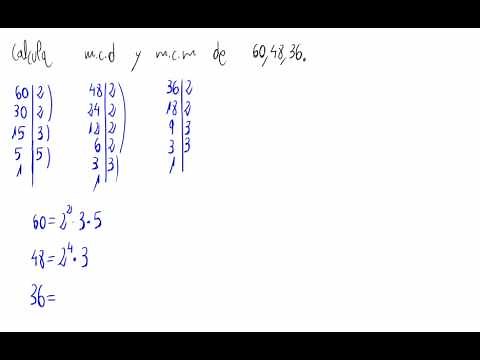 Calcula m.c.d y m.c.m de 60, 48, 36.
60 | 2 48 | 2 36 | 2
30 | 2 24 | 2 18 | 2
15 | 3 12 | 2 9 | 3
5 | 5 6 | 2 3 | 3
1 | 3 | 3 1 |
1 |
60 = 2² · 3 · 5
48 = 2⁴ · 3
36 =